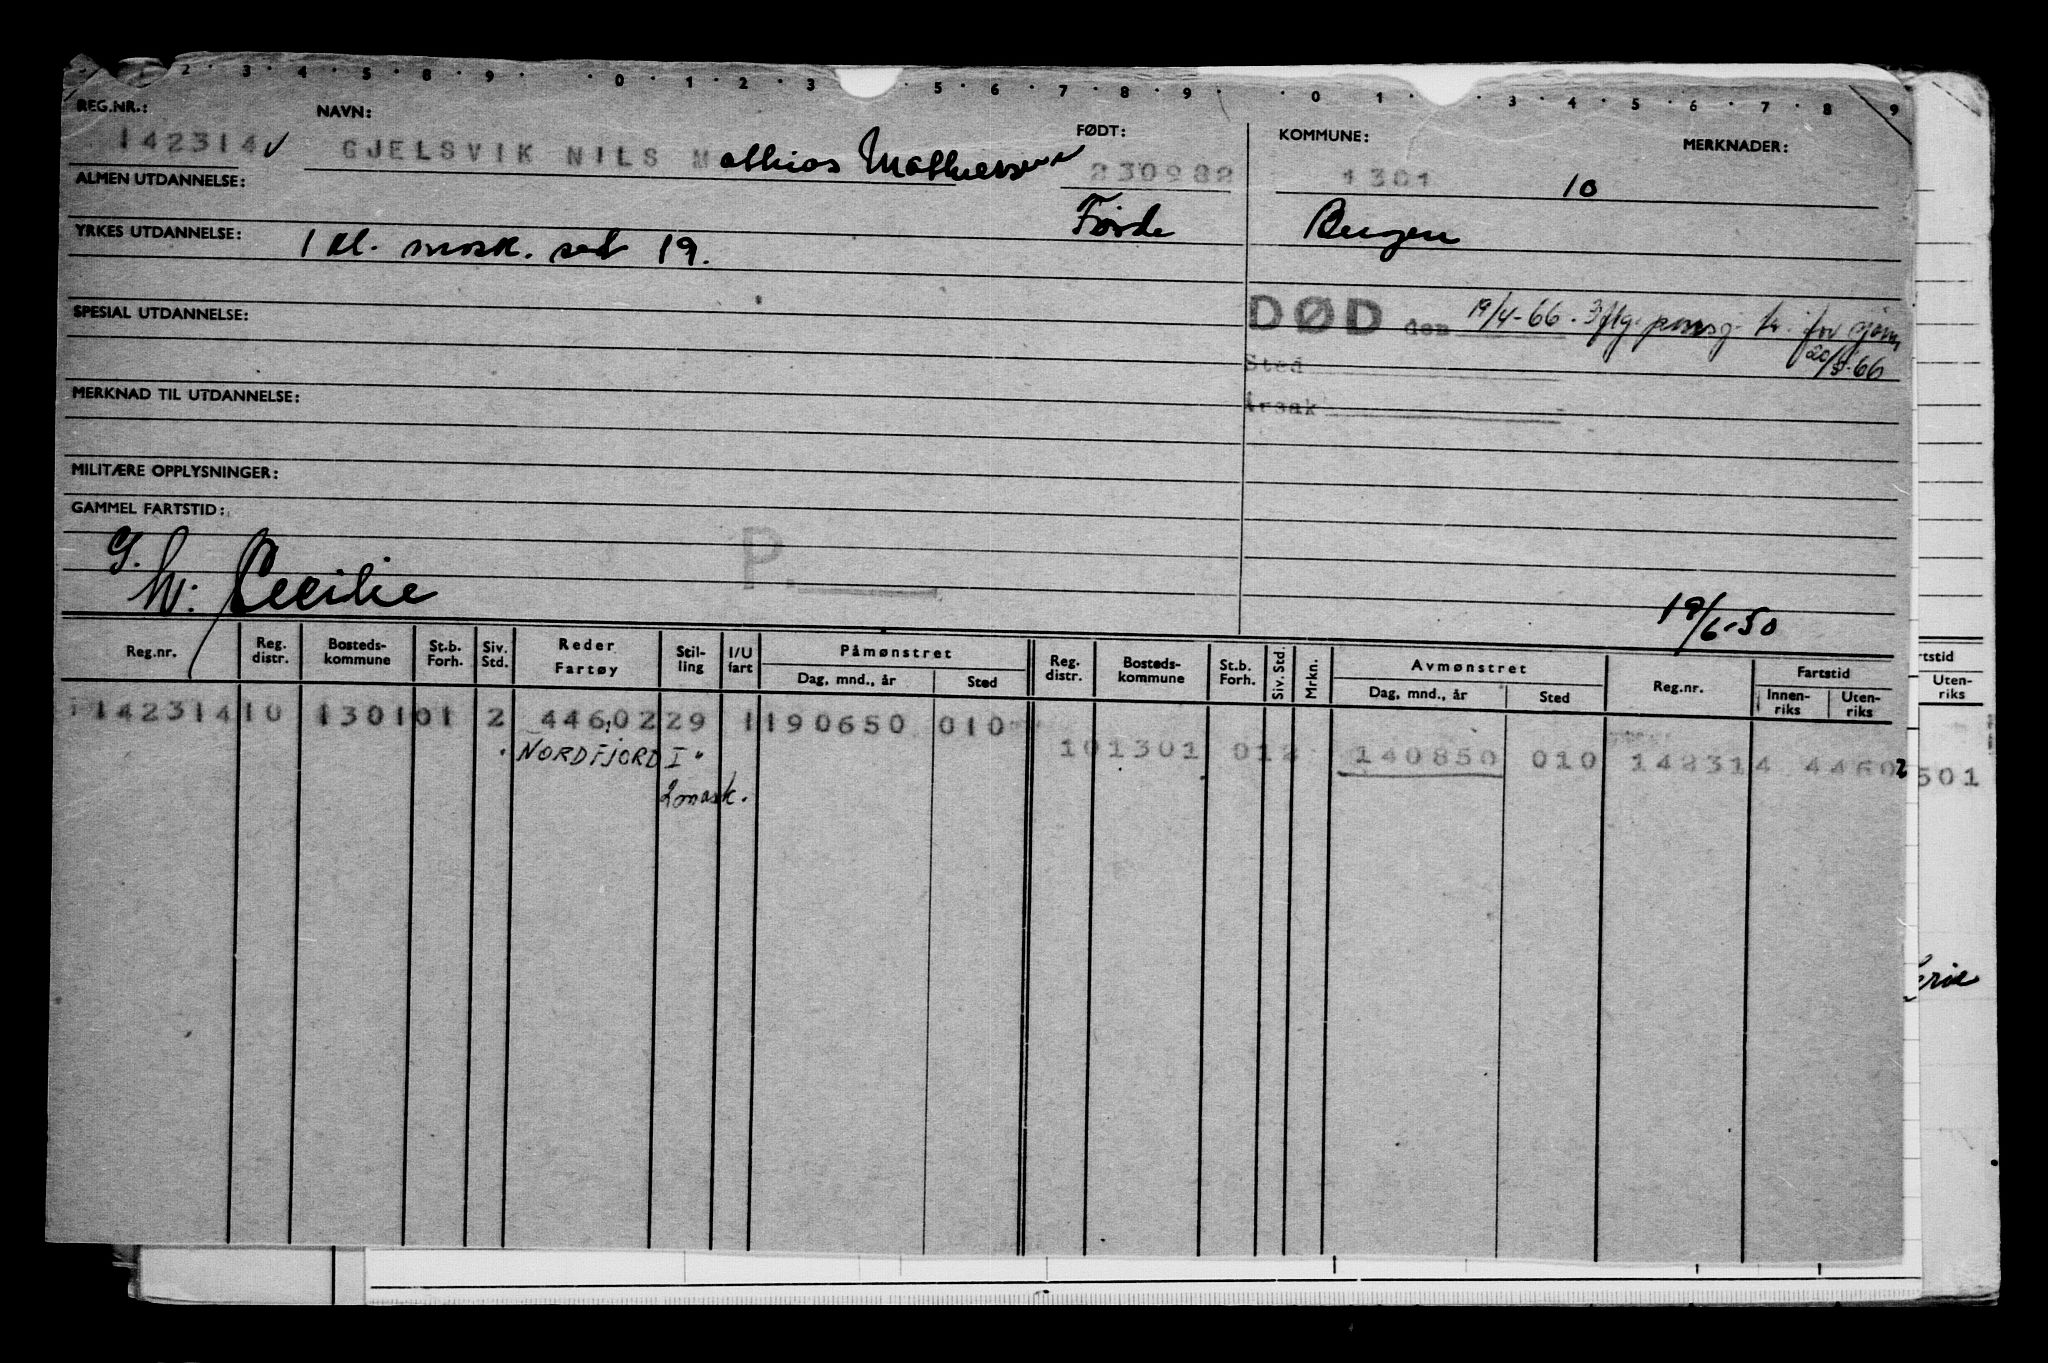 2 · 3 · 4 · 5 · 8 · 9 · · 0 · 1 · 2 · 3 5 · 6 · 7 · 8 · 9 · · 0 · 1 · 3 · 4 · 5 · 6 · 7 · 8 · 9
REG.NR.: NAVN: FØDT: KOMMUNE: MERKNADER:
142314 GJELSVIK NILS Mathias 230982 1301 10
ALMEN UTDANNELSE:
Førde Bergen
YRKES UTDANNELSE: 1 kl. mask. sert 19.
SPESIAL UTDANNELSE:
DØD den 19/4-66.
20/5-66
Sted
Årsak
MERKNAD TIL UTDANNELSE:
MILITÆRE OPPLYSNINGER:
GAMMEL FARTSTID:
G. P.
H: Cecilie 19/6-50
Reg.nr. Reg. distr. Bosteds-kommune St.b. Forh. Siv. Std. Reder Fartøy Stil-ling I/U fart Påmønstret Dag, mnd., år Sted Reg. distr. Bosteds-kommune St.b. Forh. Siv. Std. Mrkn. Avmønstret Dag, mnd., år Sted Reg.nr. Fartstid Innen-riks Uten-riks
rtstid
Uten-riks
142314 10 1301 01 2 44602 29 1 190650 010
"NORDFJORD I" 10 1301 01 2 140850 010 142314 44602 501
2 mask.